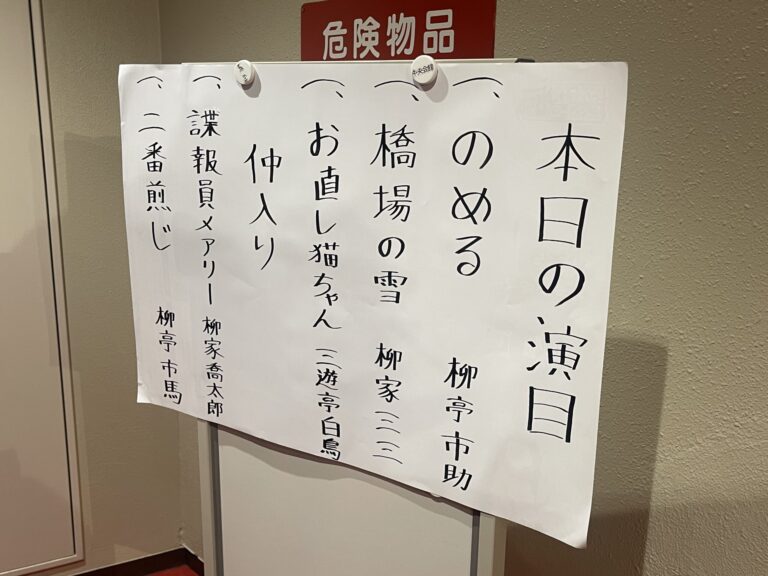 危険物品
本日の演目
一、のめる 柳亭市助
一、橋場の雪 柳家三三
一、お直し猫ちゃん 三遊亭白鳥
仲入り
一、諜報員メアリー 柳家喬太郎
一、二番煎じ 柳亭市馬